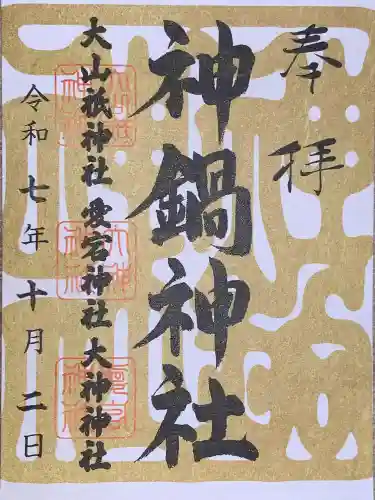 奉拝
神鍋神社
大山祇神社 愛宕神社 大神神社
令和七年十月二日